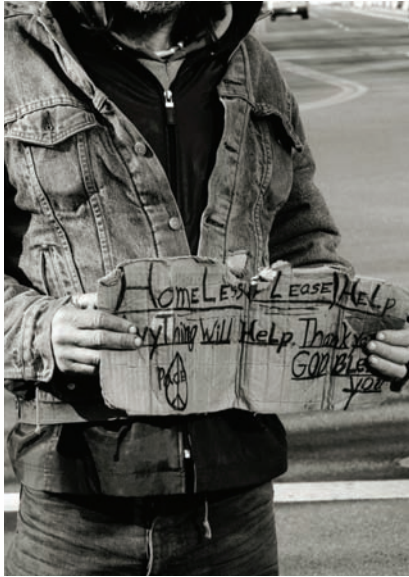 HomeLess PLease HeLp
nyThing Will HeLp. Thank
GOD BLe
you